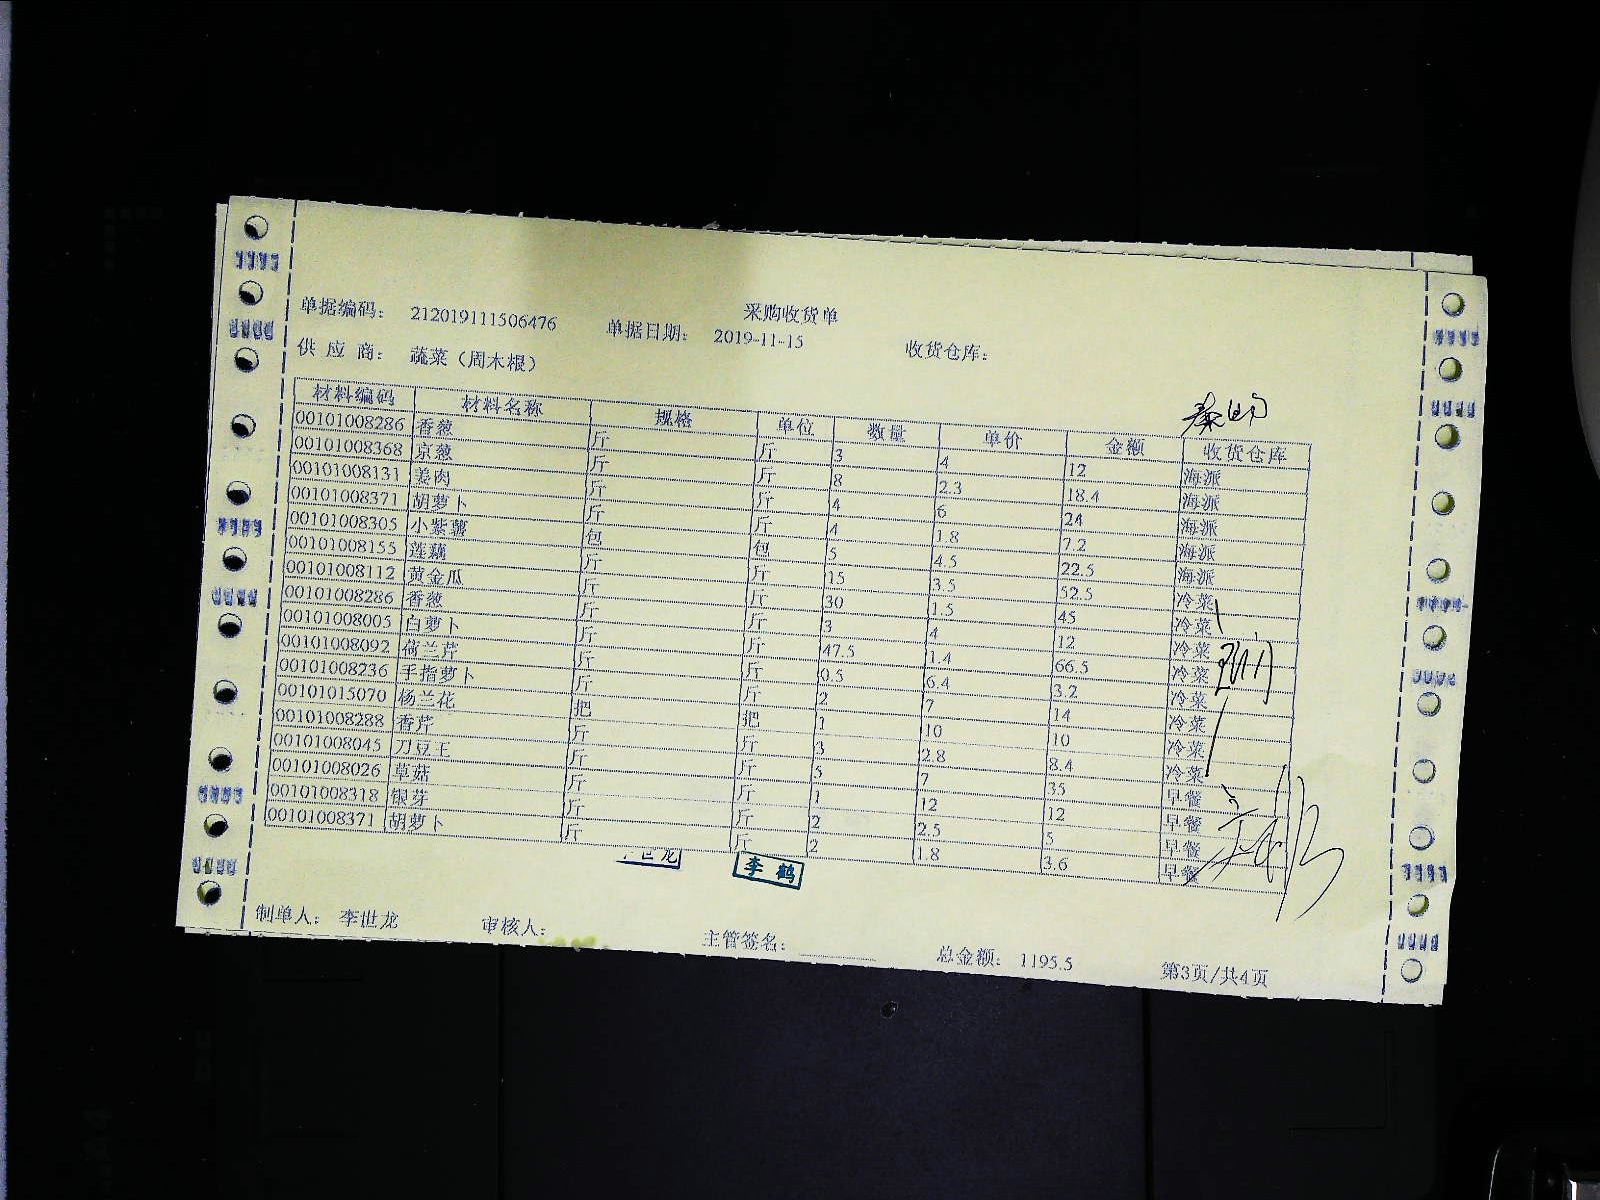 采购收货单
单据编码： 212019111506476 单据日期： 2019-11-15 收货仓库：
供 应 商： 蔬菜（周木根）
材料编码 材料名称 规格 单位 数量 单价 金额 收货仓库
00101008286 香葱 斤 斤 3 4 12 海派
00101008368 京葱 斤 斤 8 2.3 18.4 海派
00101008131 姜肉 斤 斤 4 6 24 海派
00101008371 胡萝卜 斤 斤 4 1.8 7.2 海派
00101008305 小紫薯 包 包 5 4.5 22.5 海派
00101008155 莲藕 斤 斤 15 3.5 52.5 冷菜
00101008112 黄金瓜 斤 斤 30 1.5 45 冷菜
00101008286 香葱 斤 斤 3 4 12 冷菜
00101008005 白萝卜 斤 斤 47.5 1.4 66.5 冷菜
00101008092 荷兰芹 斤 斤 0.5 6.4 3.2 冷菜
00101008236 手指萝卜 斤 斤 2 7 14 冷菜
00101015070 杨兰花 把 把 1 10 10 冷菜
00101008288 香芹 斤 斤 3 2.8 8.4 冷菜
00101008045 刀豆王 斤 斤 5 7 35 早餐
00101008026 草菇 斤 斤 1 12 12 早餐
00101008318 银芽 斤 斤 2 2.5 5 早餐
00101008371 胡萝卜 斤 斤 2 1.8 3.6 早餐
世龙 李鹤
制单人： 李世龙 审核人： 主管签名： 总金额： 1195.5 第3页/共4页